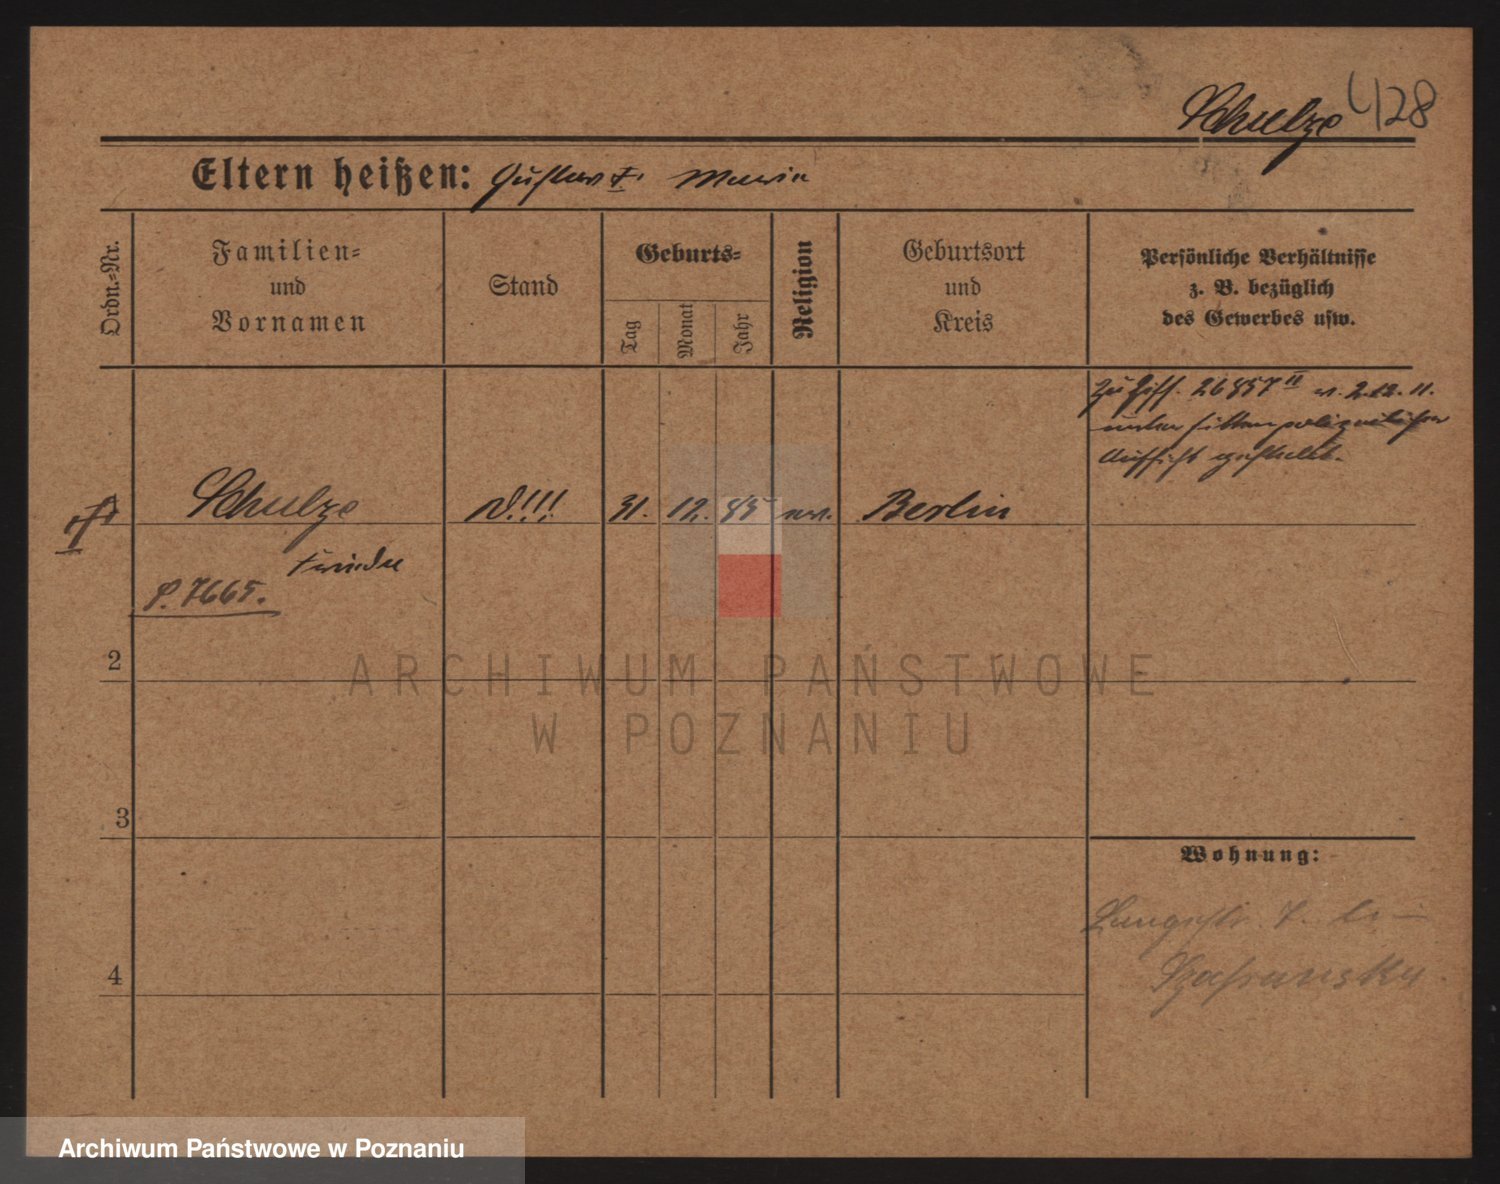 Schulze 428
Eltern heißen: Gustav †. Marie
Ordn.-Nr.
Familien- und Vornamen
Stand
Geburts-
Tag
Monat
Jahr
Religion
Geburtsort und Kreis
Persönliche Verhältnisse
z. B. bezüglich
des Gewerbes usw.
26857 II v. 2.12.11.
unter sittenpolizeilicher
Aufsicht gestellt.
Schulze
!!!
31. 12. 85
Berlin
P. 7665.
2
3
4
Wohnung:
Langestr. 7.
ARCHIWUM PAŃSTWOWE
W POZNANIU
Archiwum Państwowe w Poznaniu